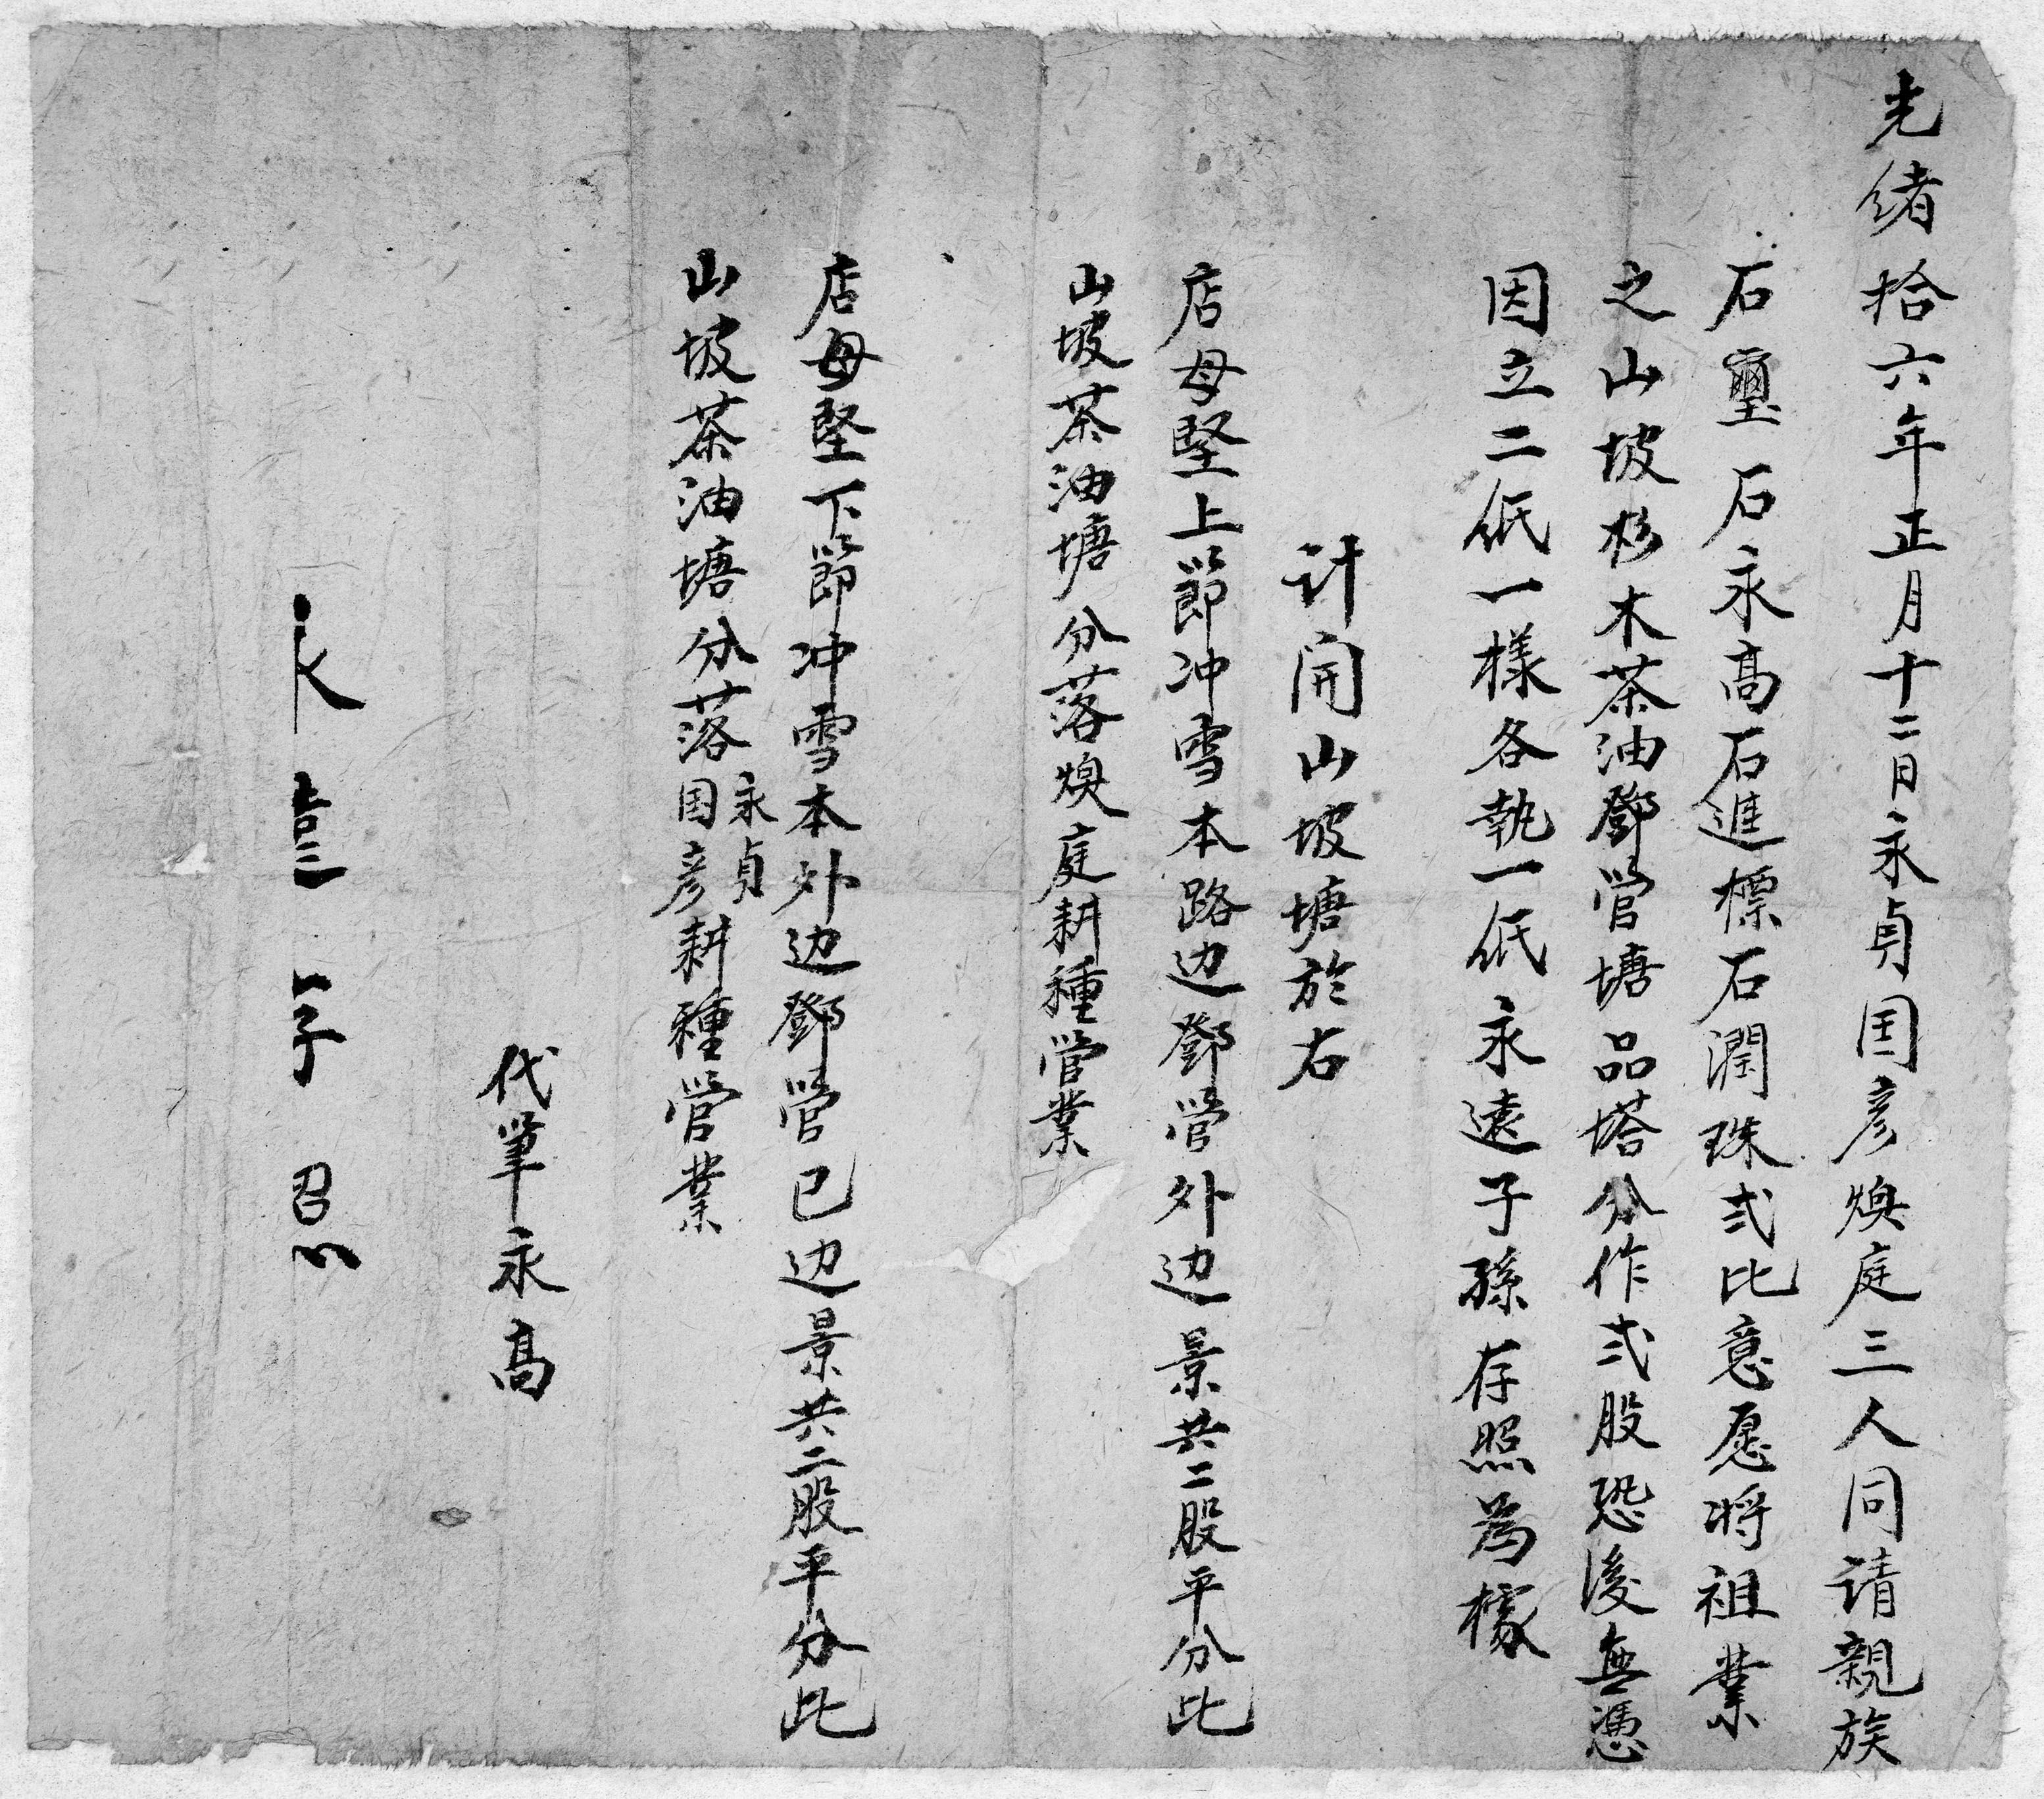 光緒拾六年正月十二日永貞国彦煥庭三人同请親族
石璽石永高石進標石潤珠弍比意愿将祖業
之山坡杉木茶油鄧管塘品塔分作弍股恐後無憑
因立二低一樣各執一低永遠子孫存照為據
计開山坡塘於右
店母堅上節冲雪本路边鄧管外边景共二股平分比
山坡茶油塘分落煥庭耕種管業
店母堅下節冲雪本外边鄧管已边景共二股平分比
山坡茶油塘分落永貞国彦耕種管業
代筆永高